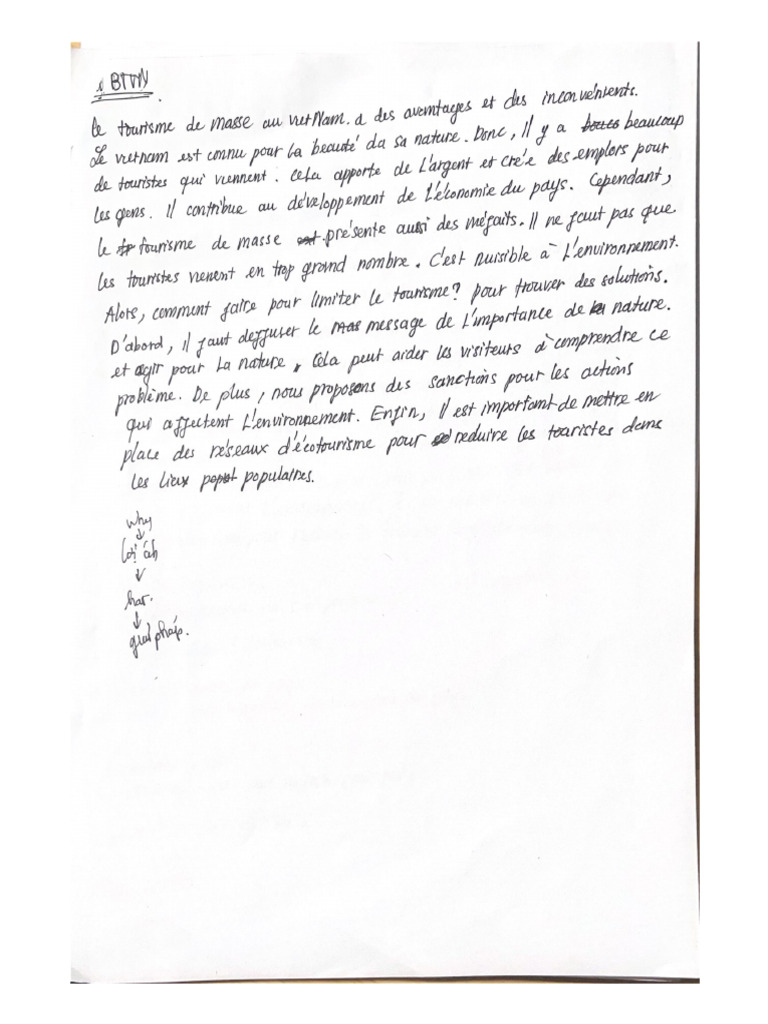 BTVN
Le tourisme de masse au VietNam a des avantages et des inconvénients.
Le Vietnam est connu pour la beauté da sa nature. Donc, il y a beaucoup
de touristes qui viennent. Cela apporte de L'argent et crée des emplois pour
les gens. Il contribue au développement de L'économie du pays. Cependant,
le tourisme de masse présente aussi des méfaits. Il ne faut pas que
Les touristes viennent en trop grand nombre. C'est nuisible à L'environnement.
Alors, comment faire pour limiter le tourisme? pour trouver des solutions.
D'abord, il faut deffuser le message de L'importance de nature.
et agir pour La nature, Cela peut aider les visiteurs à comprendre ce
problème. De plus, nous proposons des sanctions pour les actions
qui affectent L'environnement. Enfin, il est important de mettre en
place des réseaux d'écotourisme pour reduire les touristes dans
les lieux populaires.
why
↓
Lợi ích
↓
hại.
↓
giải pháp.